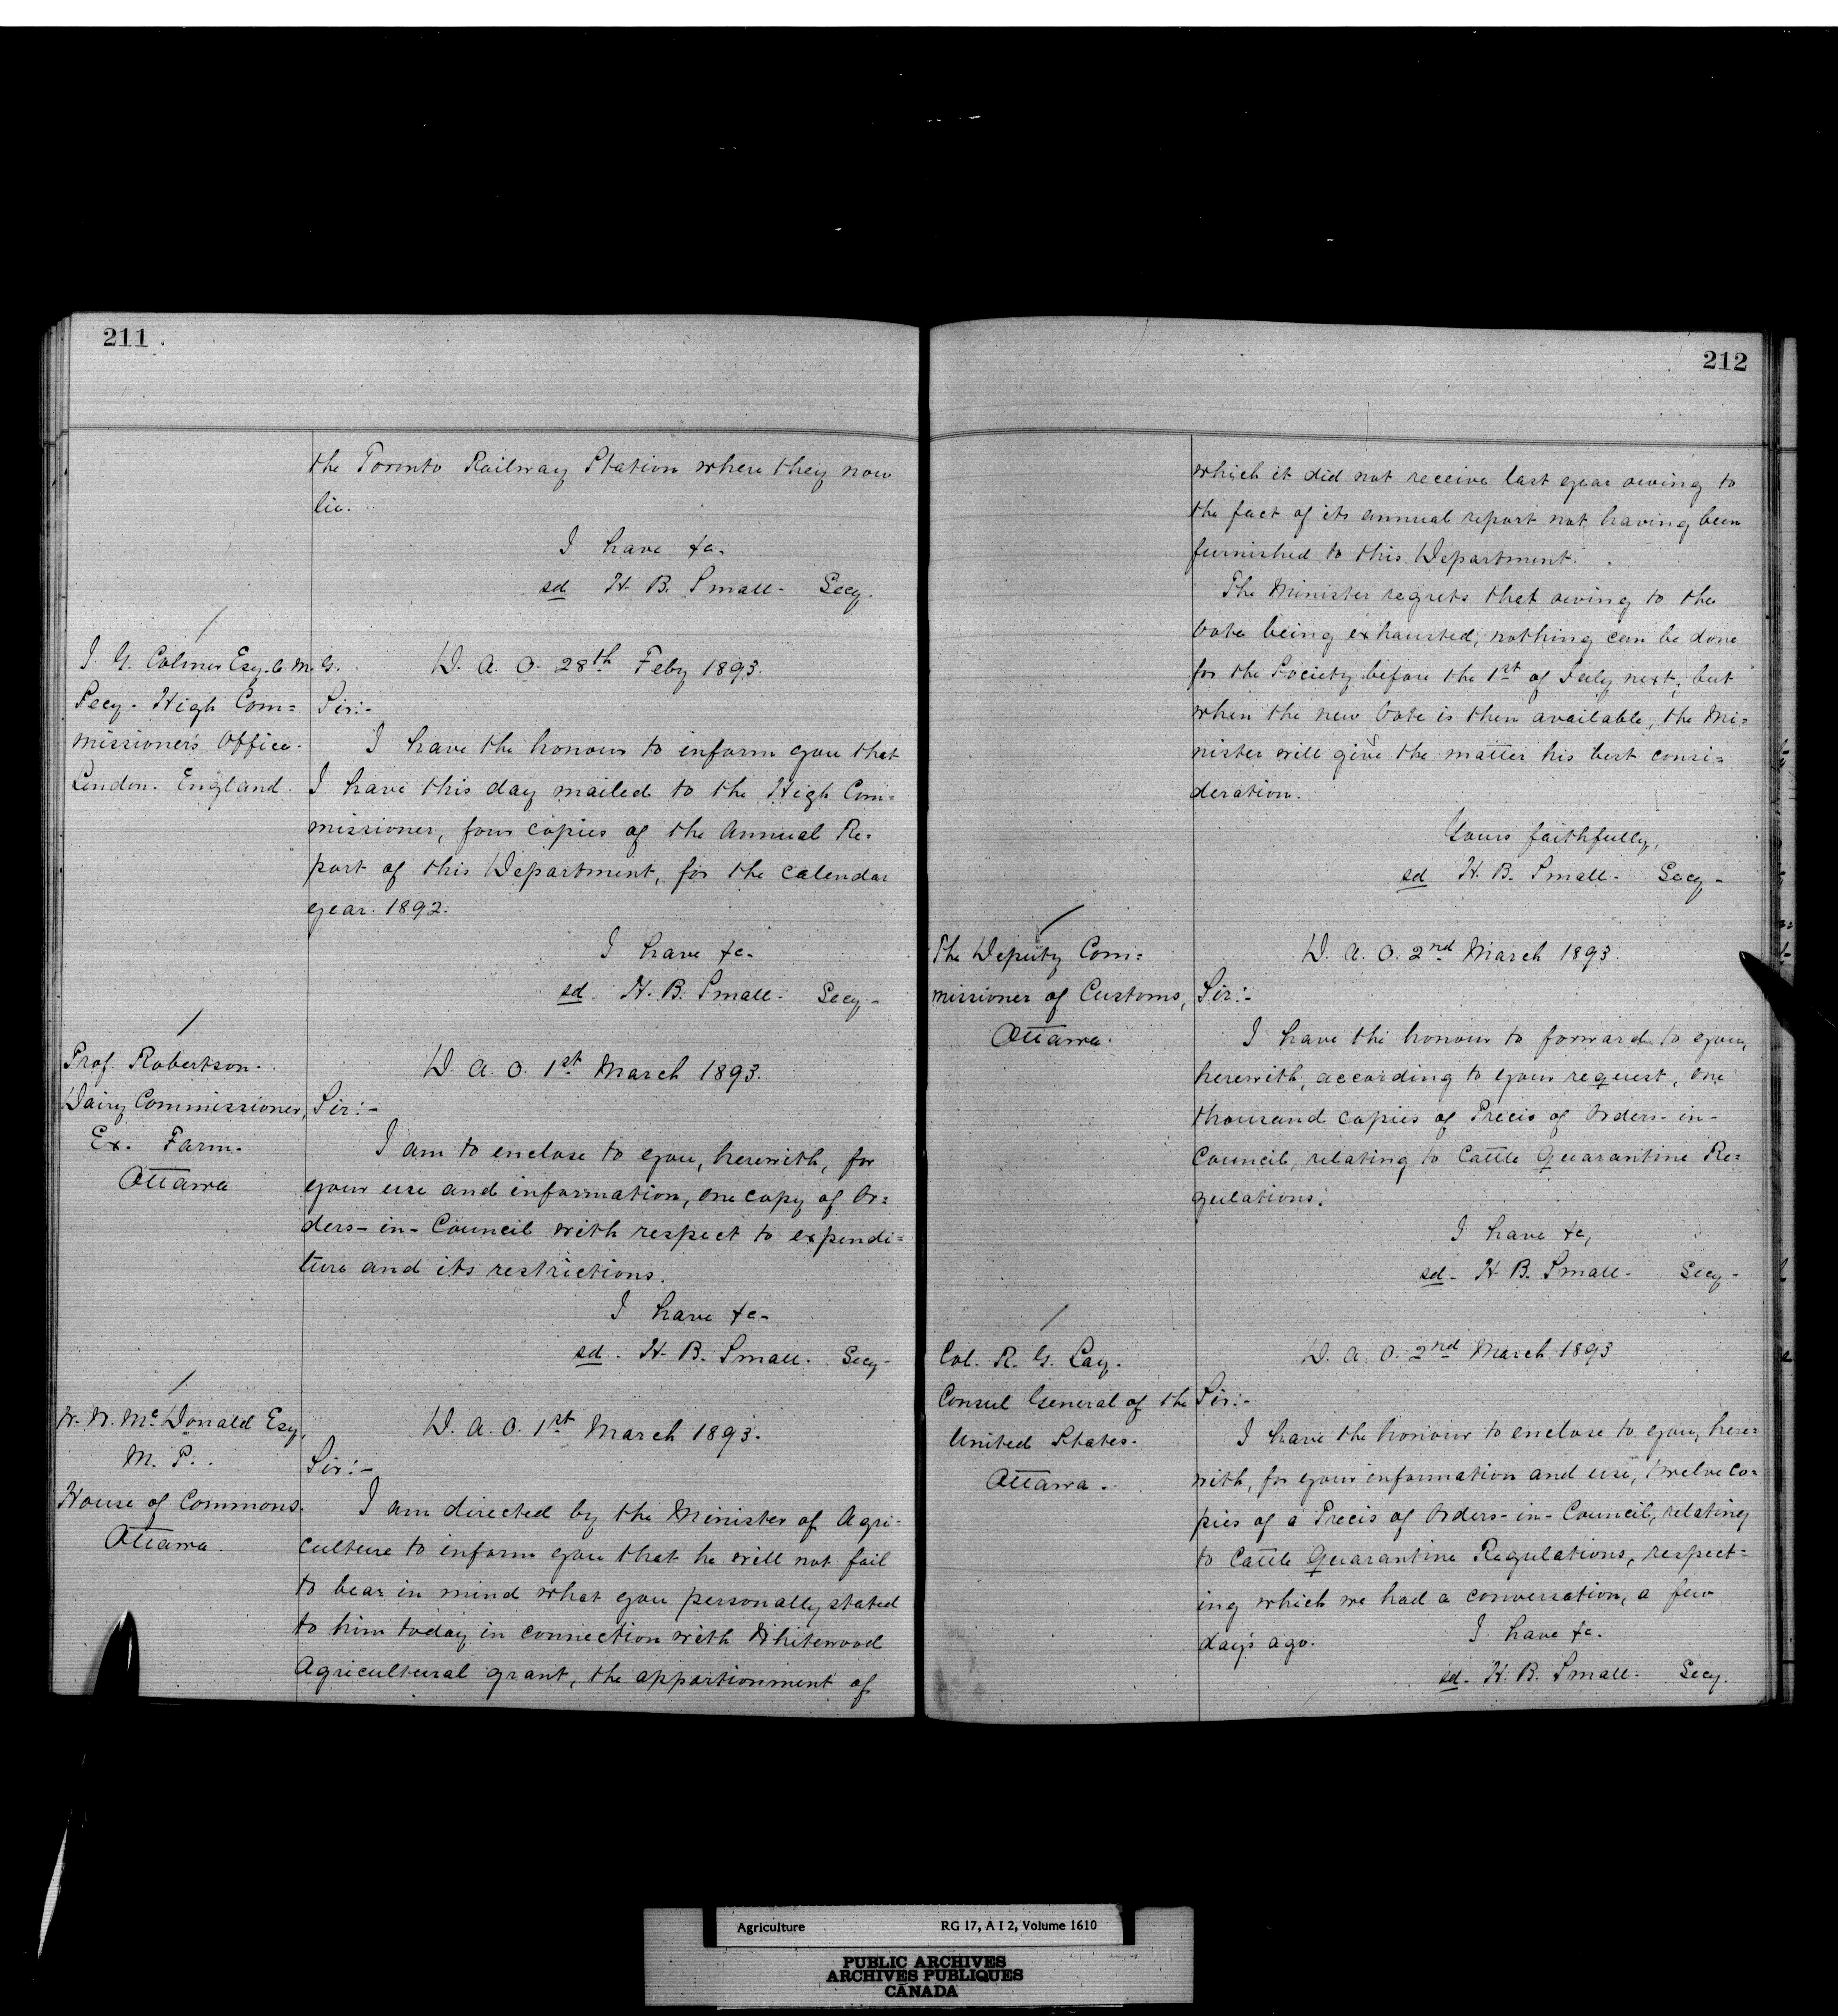 211
the Toronto Railway Station where they now
lie.
I have &c.
sd H. B. Small. Secy.
J. G. Colmer Esq. C. M. G.
Secy. High Com=
missioner's Office.
London. England.
D. A. O. 28th Feby 1893.
Sir:-
I have the honour to inform you that
I have this day mailed to the High Com=
missioner, four copies of the Annual Re=
port of this Department, for the calendar
year. 1892.
I have &c.
sd. H. B. Small. Secy-
Prof. Robertson.
Dairy Commissioner,
Ex. Farm.
Ottawa
D. A. O. 1st March 1893.
Sir:-
I am to enclose to you, herewith, for
your use and information, one copy of Or=
ders-in-Council with respect to expendi=
ture and its restrictions.
I have &c-
sd. H. B. Small. Secy-
W. W. McDonald Esq,
M. P.
House of Commons.
Ottawa.
D. A. O. 1st March 1893.
Sir:-
I am directed by the Minister of Agri=
culture to inform you that he will not fail
to bear in mind what you personally stated
to him today in connection with Whitewood
Agricultural grant, the apportionment of
212
which it did not receive last year owing to
the fact of its annual report not having been
furnished to this Department.
The Minister regrets that owing to the
Vote being exhausted, nothing can be done
for the Society before the 1st of July next; but
when the new Vote is then available, the Mi=
nister will give the matter his best consi=
deration.
Yours faithfully,
sd H. B. Small. Secy-
The Deputy Com=
missioner of Customs,
Ottawa.
D. A. O. 2nd March 1893.
Sir:-
I have the honour to forward to you,
herewith, according to your request, one
thousand copies of Precis of Orders-in-
Council, relating to Cattle Quarantine Re=
gulations.
I have &c,
sd- H. B. Small- Secy-
Col. R. G. Lay.
Consul General of the
United States.
Ottawa.
D. A. O. 2nd March 1893
Sir:-
I have the honour to enclose to you, here=
with, for your information and use, twelve co=
pies of a Precis of Orders-in-Council, relating
to Cattle Quarantine Regulations, respect=
ing which we had a conversation, a few
days ago.
I have &c.
sd. H. B. Small. Secy.
Agriculture RG 17, A I 2, Volume 1610
PUBLIC ARCHIVES
ARCHIVES PUBLIQUES
CANADA